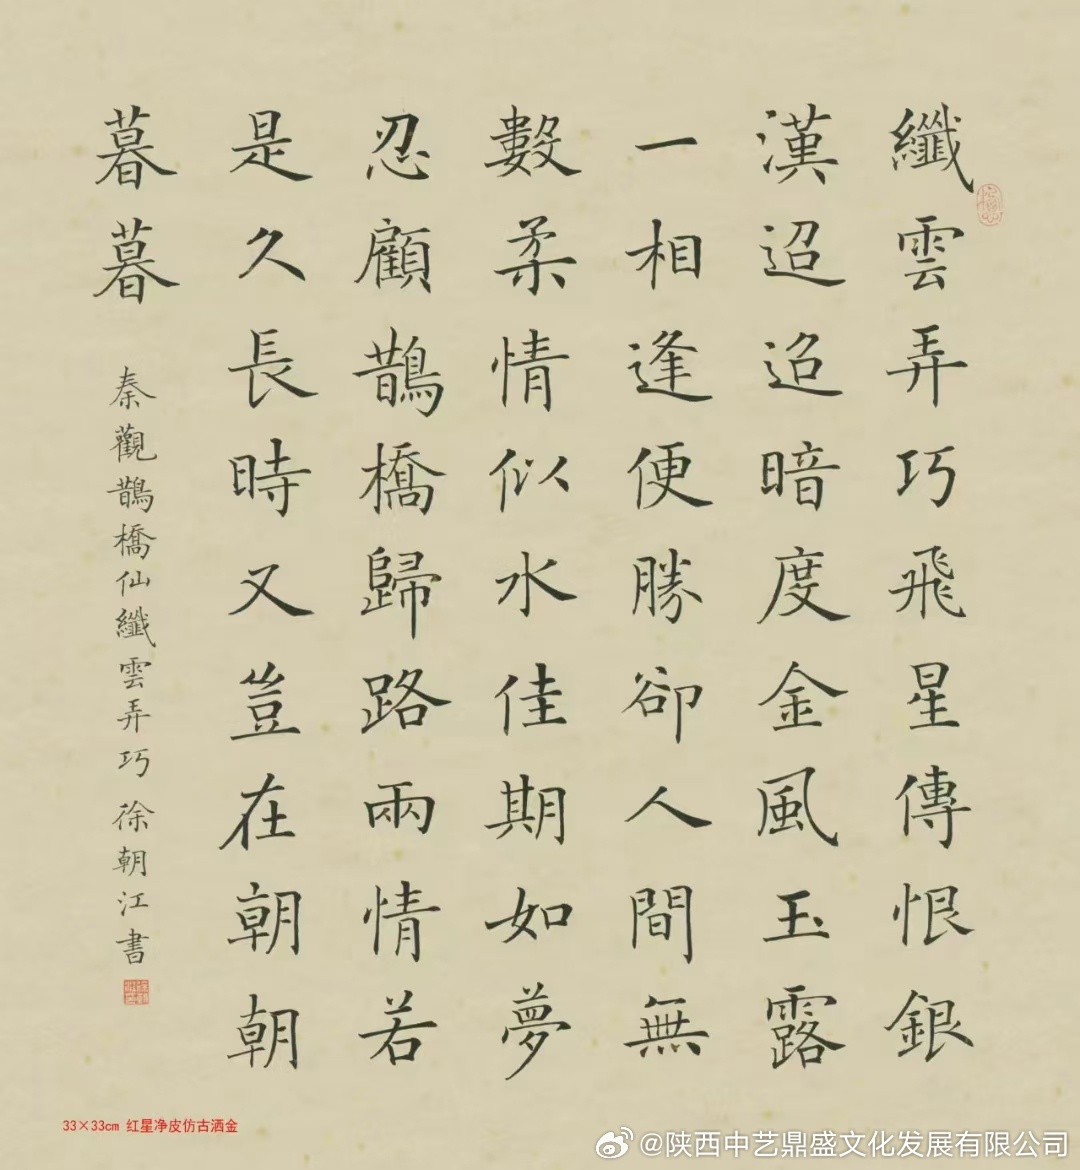 纖雲弄巧飛星傳恨銀
漢迢迢暗度金風玉露
一相逢便勝卻人間無
數柔情似水佳期如夢
忍顧鵲橋歸路兩情若
是久長時又豈在朝朝
暮暮
秦觀鵲橋仙纖雲弄巧 徐朝江書
33×33cm 红星净皮仿古洒金
@陕西中艺鼎盛文化发展有限公司